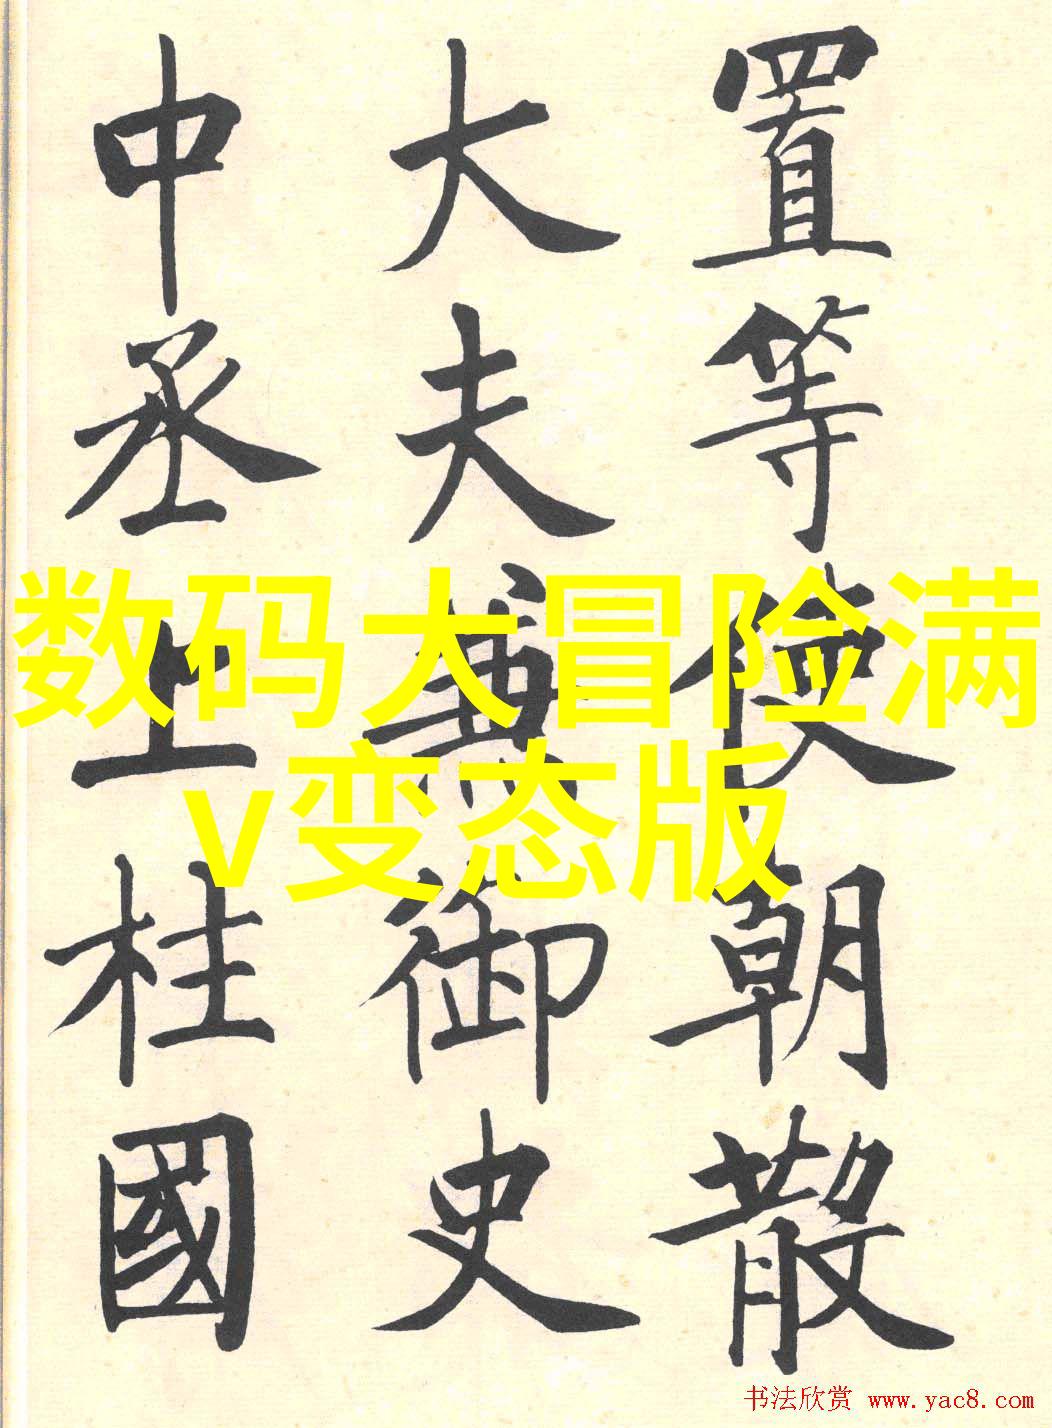 置等使朝散
大夫兼御史
中丞上柱國
数码大冒险满
v变态版
书法欣赏 www.yac8.com